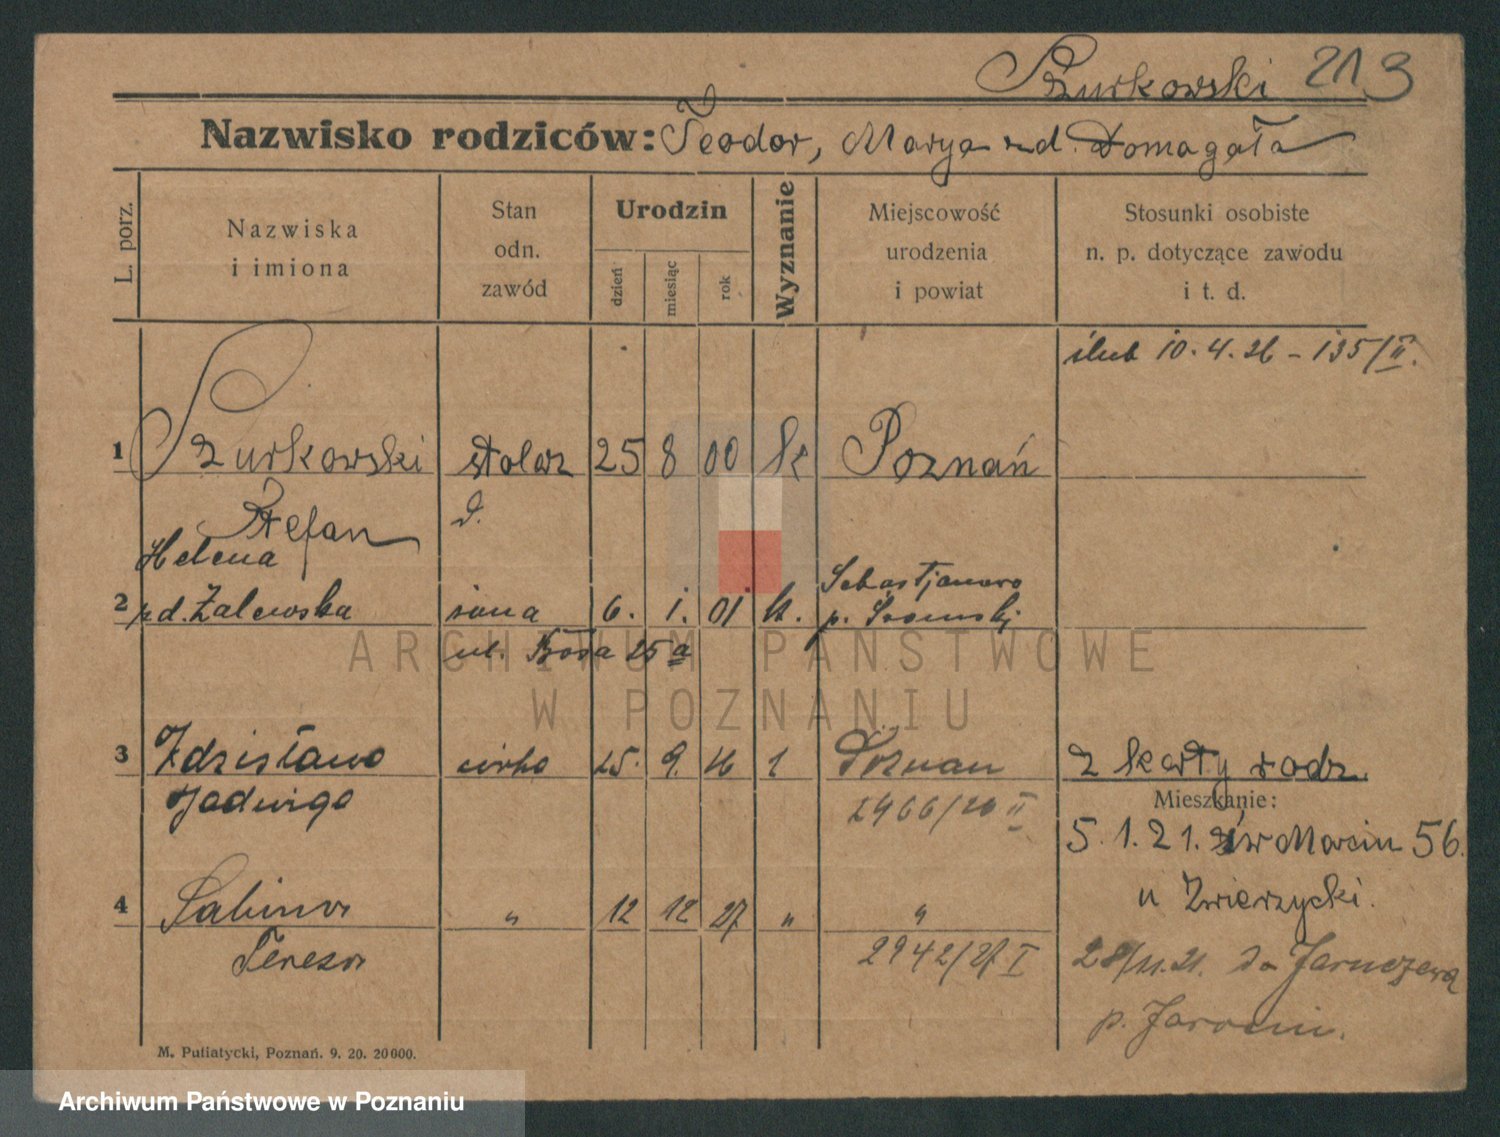 Szurkowski 213
Nazwisko rodziców: Teodor, Marya zd. Domagała
L. porz.
Nazwiska
i imiona
Stan
odn.
zawód
Urodzin
dzień
miesiąc
rok
Wyznanie
Miejscowość
urodzenia
i powiat
Stosunki osobiste
n. p. dotyczące zawodu
i t. d.
ślub 10.4.26 - 135/II.
1 Szurkowski stolarz 25 8 00 k Poznań
Stefan
Helena
2 zd. Żalewska żona 6. 1. 01 k. Sebastjanowo
p. Śremski
ul. Bóża 25a
3 Zdzisława córka 25. 9. 26 1 Poznań z karty rodz.
Jadwiga 2466/26 II
Mieszkanie:
5.1.21. św Marcin 56.
u Zwierzycki.
4 Sabina " 12 12 27 " "
Teresa 2942/27 I
28/11.21. do Jaraczewa
p. Jarocin.
M. Putiatycki, Poznań. 9. 20. 20000.
ARCHIWUM PAŃSTWOWE
W POZNANIU
Archiwum Państwowe w Poznaniu